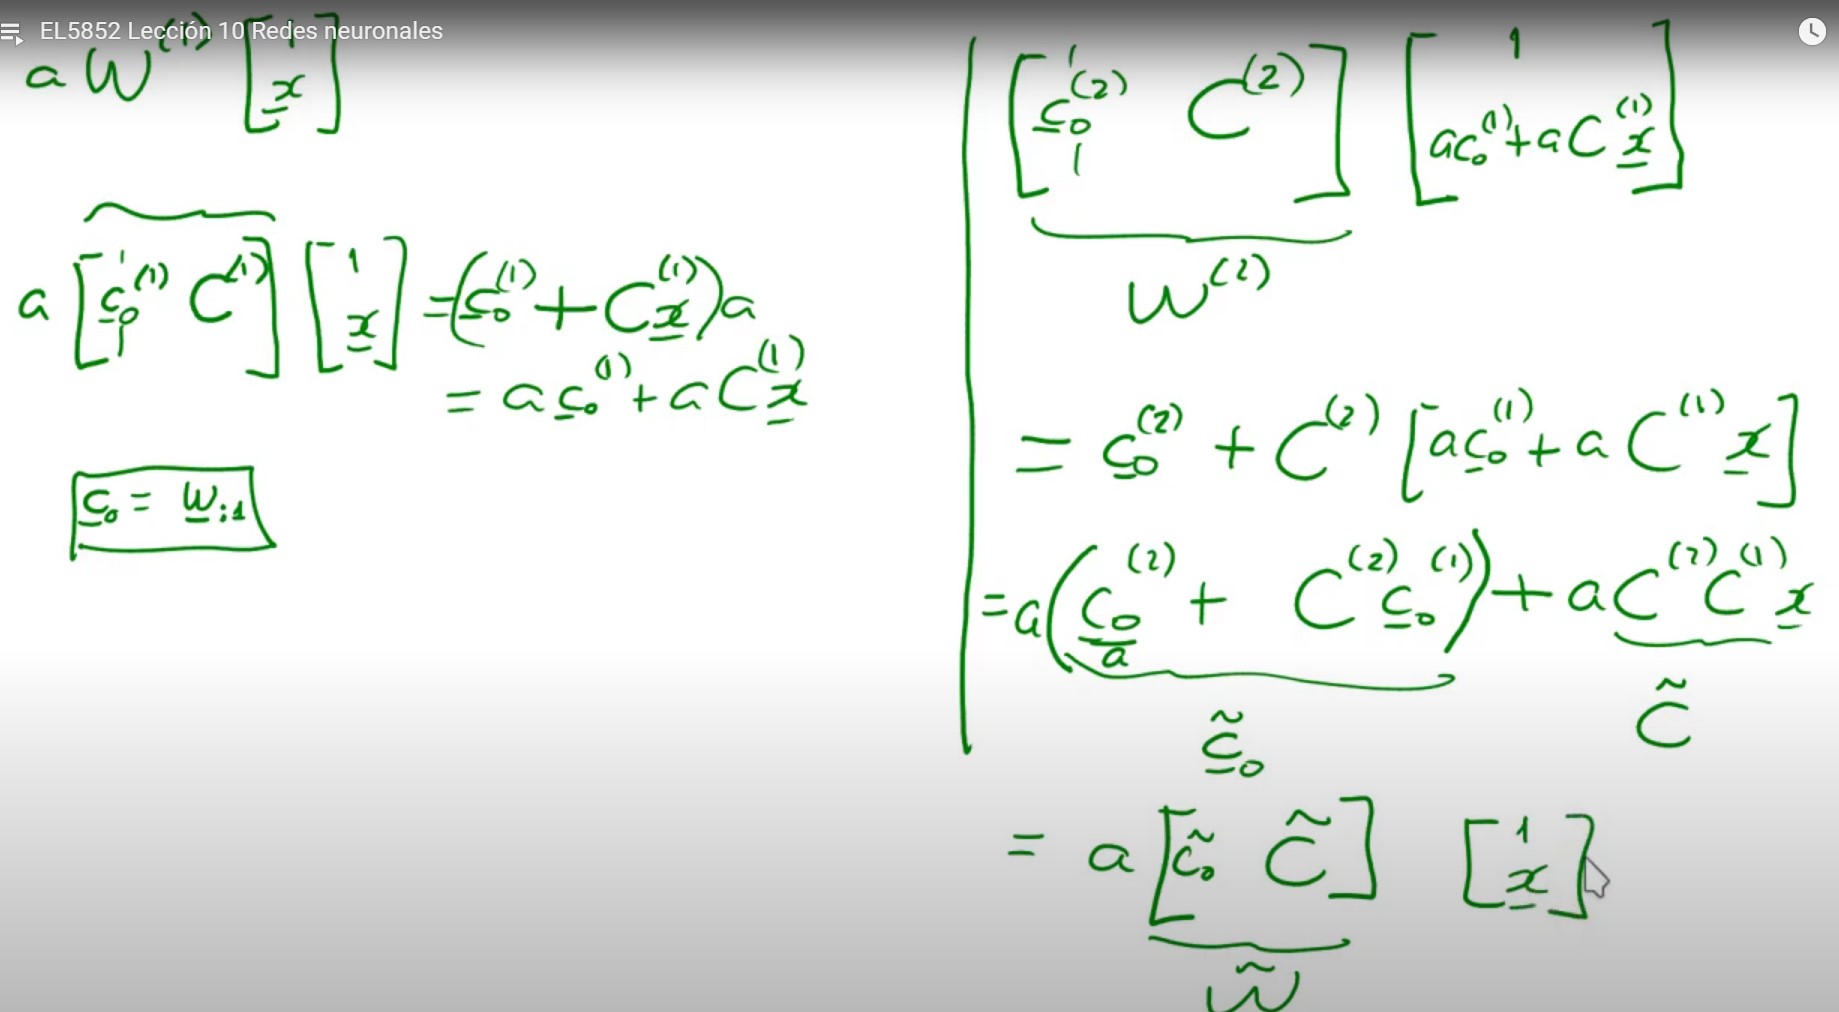 EL5852 Lección 10 Redes neuronales
a W^(1) [1 x̲]
a [c̲₀^(1) C^(1)] [1 x̲] = (c̲₀^(1) + C^(1) x̲) a
= a c̲₀^(1) + a C^(1) x̲
c̲₀ = w̲:1
[c̲₀^(2) C^(2)] [1 ac₀^(1) + a C^(1) x̲]
W^(2)
= c̲₀^(2) + C^(2) [a c̲₀^(1) + a C^(1) x̲]
= a (c̲₀^(2)/a + C^(2) c̲₀^(1)) + a C^(2) C^(1) x̲
c̲̃₀ C̃
= a [c̃₀ C̃] [1 x̲]
W̃